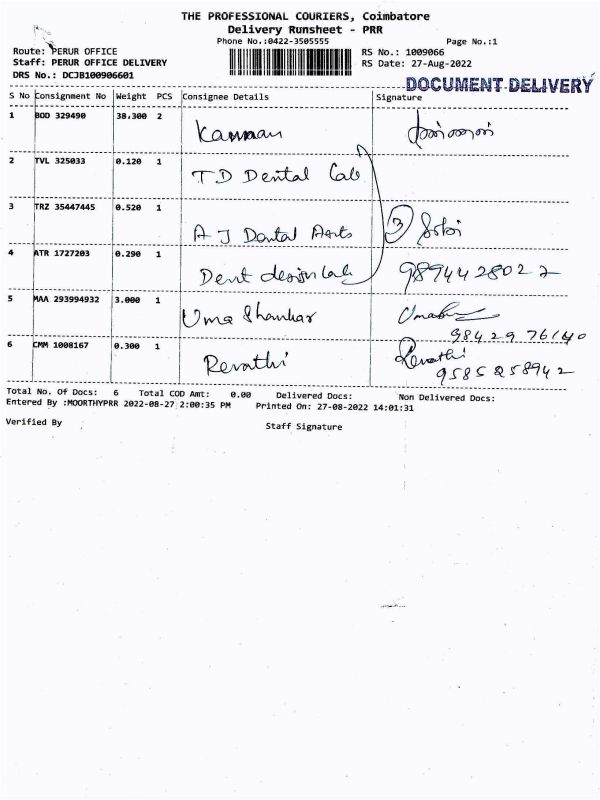 THE PROFESSIONAL COURIERS, Coimbatore
Delivery Runsheet - PRR
Phone No.:0422-3505555 Page No.:1
Route: PERUR OFFICE RS No.: 1009066
Staff: PERUR OFFICE DELIVERY RS Date: 27-Aug-2022
DRS No.: DCJB100906601
DOCUMENT DELIVERY
S No Consignment No Weight PCS Consignee Details Signature
1 BOD 329490 38.300 2 Kannan
2 TVL 325033 0.120 1 T D Dental Lab
3 TRZ 35447445 0.520 1 A J Dental Arts 3
4 ATR 1727203 0.290 1 Dent design lab 9894428022
5 MAA 293994932 3.000 1 Uma Shankar
9842976140
6 CMM 1008167 0.300 1 Revathi Revathi
9585858942
Total No. Of Docs: 6 Total COD Amt: 0.00 Delivered Docs: Non Delivered Docs:
Entered By :MOORTHYPRR 2022-08-27 2:00:35 PM Printed On: 27-08-2022 14:01:31
Verified By Staff Signature